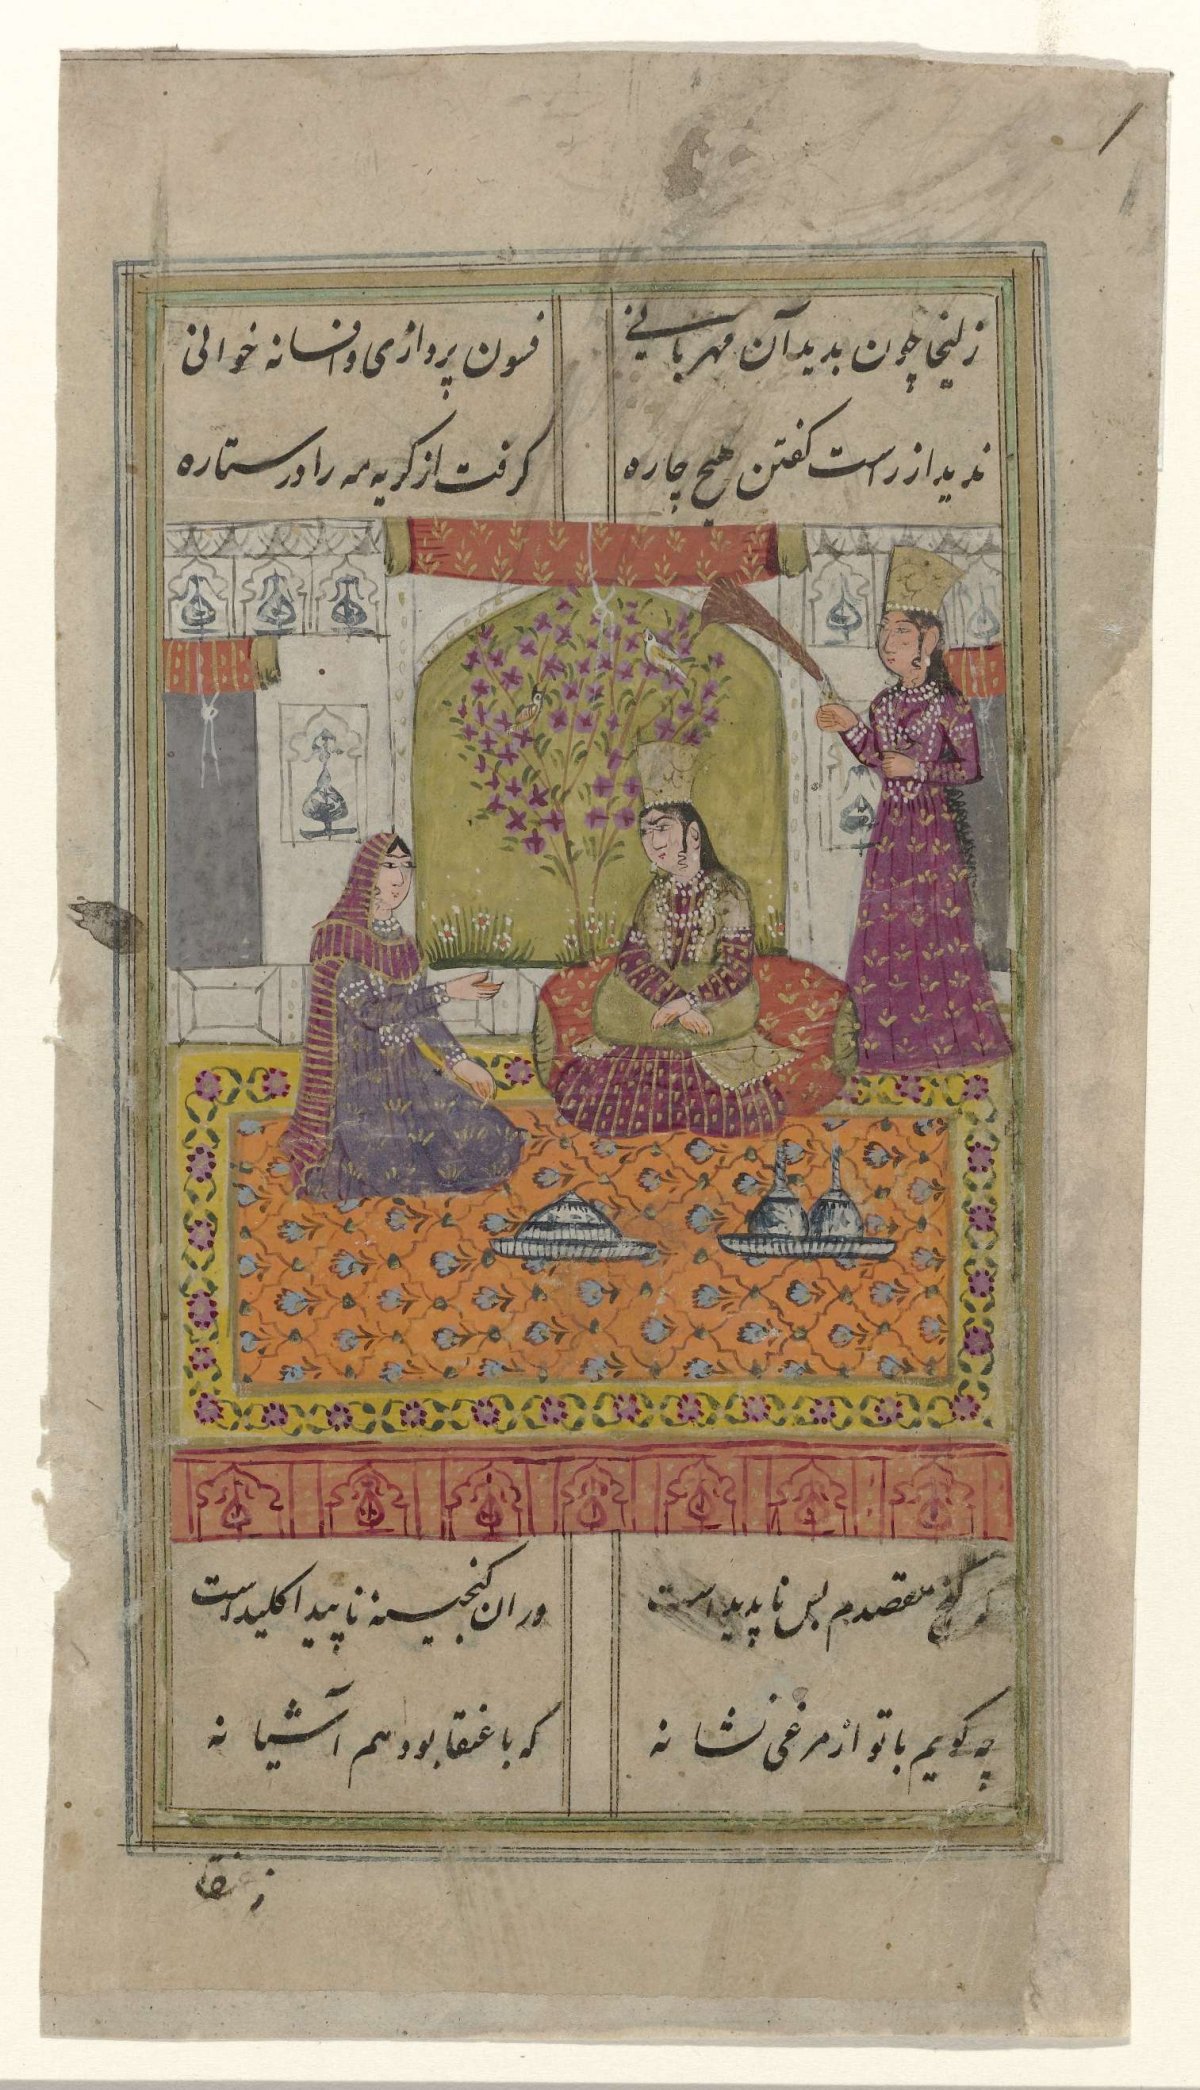 زلیخا چون بدید آن مهربانی
فسون پردازی و افسانه خوانی
ندید از راست گفتن هیچ چاره
گرفت از گریه مه را در ستاره
که گنج مقصدم بس ناپدید است
در ان گنجینه ناپیدا کلید است
چه گویم با تو از مرغی نشانه
که با عنقا بود هم آشیانه
ز عنقا